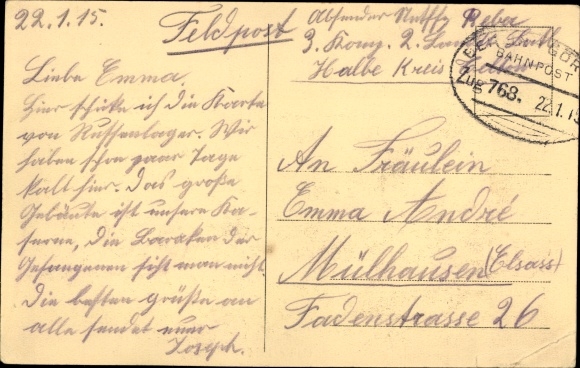 22.1.15.
Feldpost
Absender Reber
3. Komp. 2. Landst. Batl.
Halbe Kreis Teltow
BAHNPOST
Zug 768. 22.1.15
Liebe Emma,
Hier schicke ich die Karte
von Russenlager. Wir
haben schon paar Tage
kalt hier. Das große
Gebäute ist unsere Ka-
serne, die Baraken der
Gefangenen siht man nicht.
Die besten grüße an
alle sendet euer
Joseph.
An Fräulein
Emma André
Mülhausen (Elsass)
Fadenstrasse 26